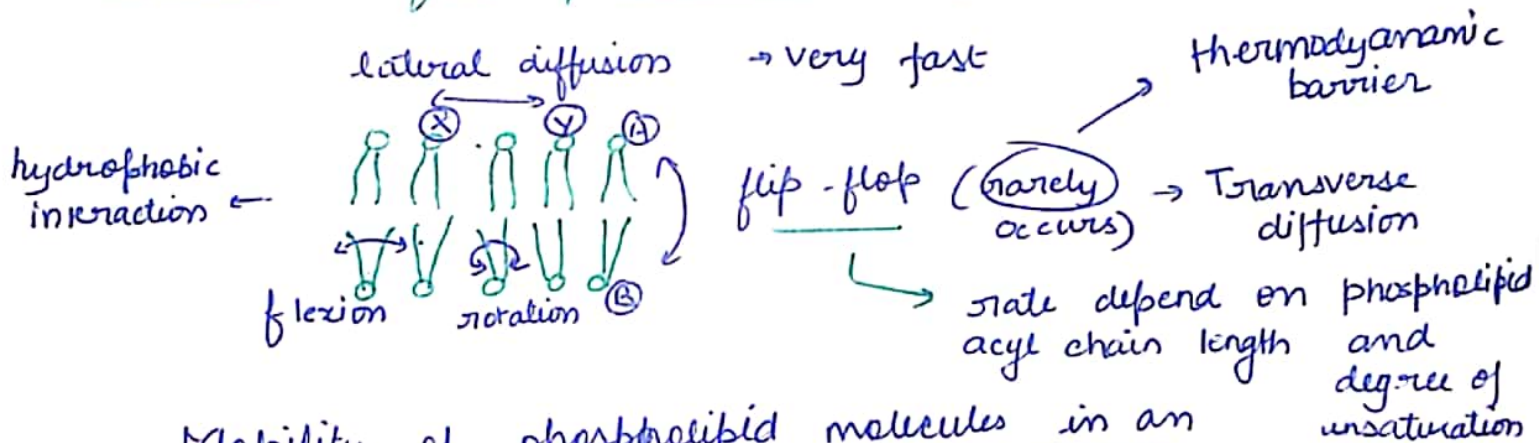 lateral diffusion → very fast
thermodyanamic
barrier
X Y A
hydrophobic
interaction ←
flip-flop (rarely
occurs) → Transverse
diffusion
flexion
rotation B
rate depend on phospholipid
acyl chain length and
degree of
unsaturation
Mobility of phospholipid molecules in an